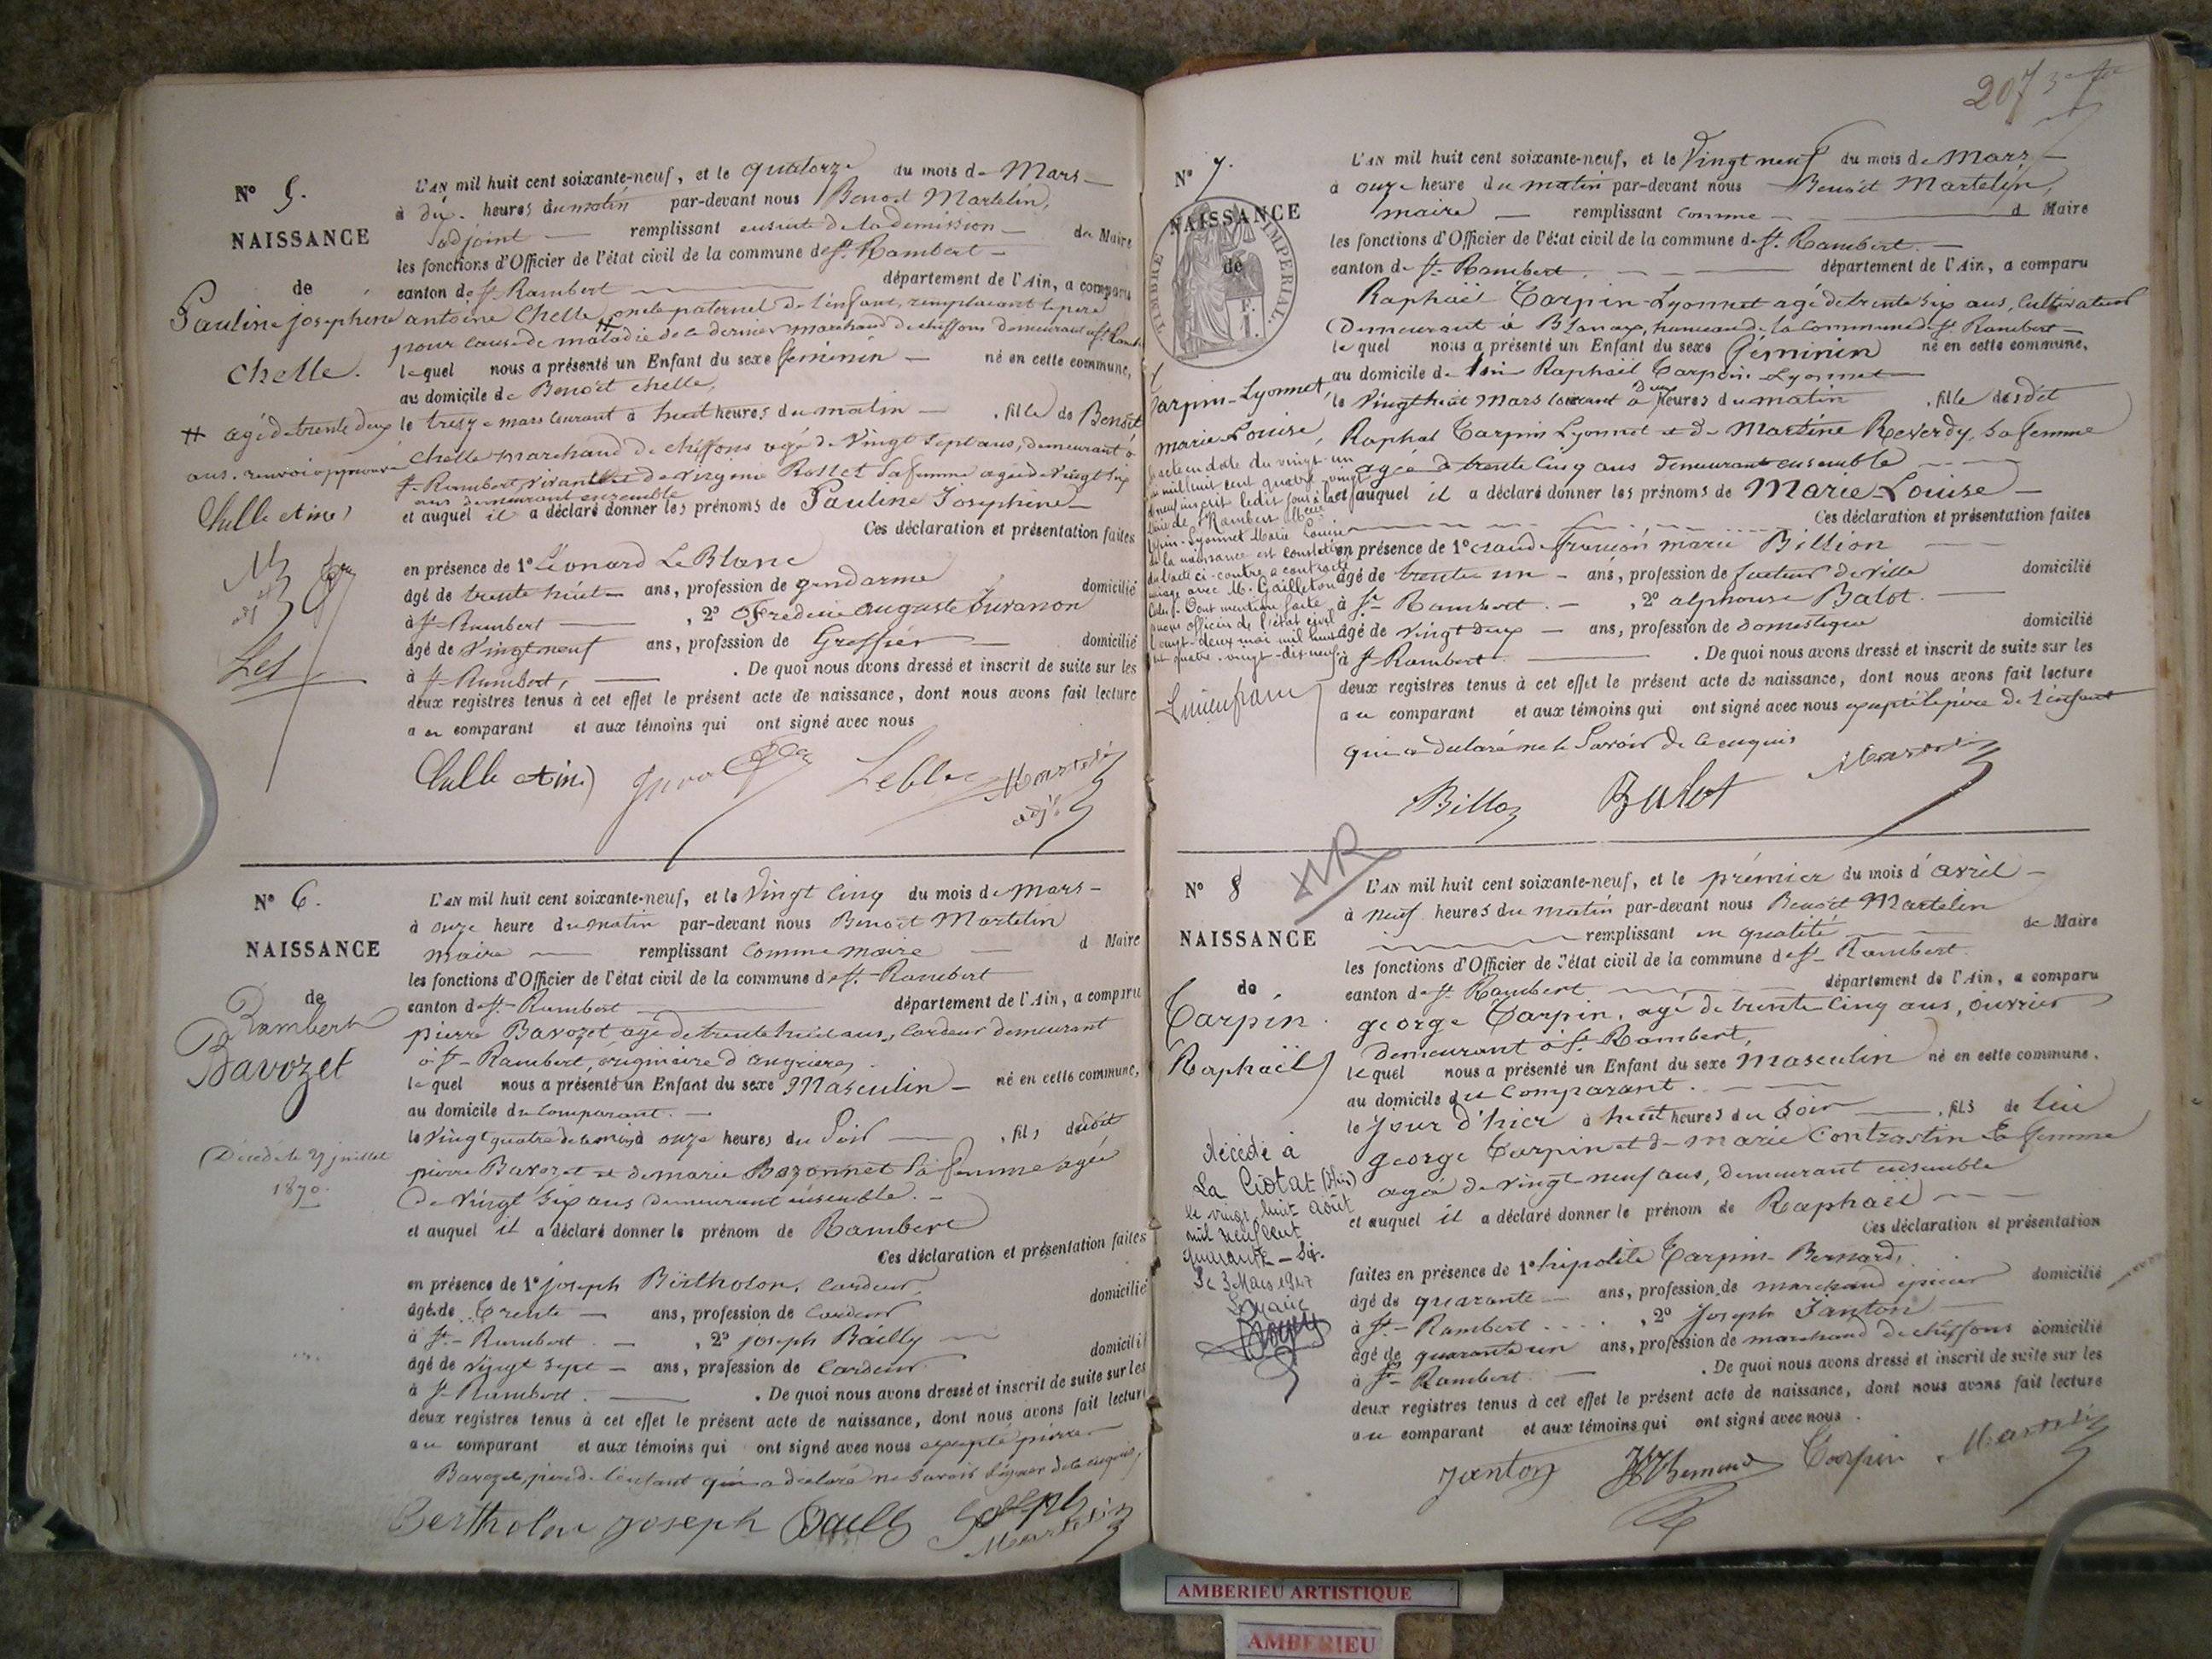 N° 5.
NAISSANCE
de
Pauline josephine
chelle.
# agé de trente deux
ans. renvoi approuvé
Chelle Aîné
L'AN mil huit cent soixante-neuf, et le quatorze du mois de Mars
à dix heures du matin par-devant nous Benoit Martelin,
adjoint remplissant ensuite de la demission de Maire
les fonctions d'Officier de l'état civil de la commune de St. Rambert
canton de St. Rambert département de l'Ain, a comparu
antoine Chelle, oncle paternel de l'enfant, remplacant le père
pour cause de maladie de ce dernier # marchand de chiffons demeurant à St. Rambert
lequel nous a présenté un Enfant du sexe feminin né en cette commune,
au domicile de Benoit chelle,
le treize mars courant à huit heures du matin , fille de Benoit
Chelle marchand de chiffons agé de Vingt Sept ans, demeurant à
St. Rambert, et de Virginie Rosset sa femme agée de Vingt Six
ans demeurant ensemble
et auquel il a déclaré donner les prénoms de Pauline Josephine
Ces déclaration et présentation faites
en présence de 1° Léonard Le Blanc
âgé de trente huit ans, profession de gendarme domicilié
à St. Rambert , 2° Frederic auguste
âgé de Vingt neuf ans, profession de Greffier domicilié
à St. Rambert, . De quoi nous avons dressé et inscrit de suite sur les
deux registres tenus à cet effet le présent acte de naissance, dont nous avons fait lecture
au comparant et aux témoins qui ont signé avec nous
Chelle Aîné Leblanc Martelin
adjt
N° 6.
NAISSANCE
de
Rambert
Bavozet
Décédé le 27 juillet
1870.
L'AN mil huit cent soixante-neuf, et le Vingt Cinq du mois de Mars
à onze heure du matin par-devant nous Benoit Martelin
maire remplissant comme maire d Maire
les fonctions d'Officier de l'état civil de la commune de St. Rambert
canton de St. Rambert département de l'Ain, a comparu
pierre Bavozet agé de trente huit ans, Cardeur demeurant
à St. Rambert, originaire d'angrieres
lequel nous a présenté un Enfant du sexe Masculin né en cette commune,
au domicile du Comparant.
le Vingt quatre de ce mois à onze heures du Soir , fils dudit
pierre Bavozet et de marie Bozonnet Sa femme agée
de Vingt Six ans demeurant ensemble.
et auquel il a déclaré donner le prénom de Rambert
Ces déclaration et présentation faites
en présence de 1° joseph Bertholon, Cardeur,
âgé de Trente ans, profession de Cardeur domicilié
à St. Rambert , 2° joseph Bailly
âgé de Vingt Sept ans, profession de Cardeur domicilié
à St. Rambert. . De quoi nous avons dressé et inscrit de suite sur les
deux registres tenus à cet effet le présent acte de naissance, dont nous avons fait lecture
au comparant et aux témoins qui ont signé avec nous excepté pierre
Bavozet, père de l'enfant qui a declaré ne savoir signer de ce enquis,
Bertholon joseph Bailly Joseph
Martelin
207
N° 7.
NAISSANCE
de
TIMBRE IMPERIAL.
F.
1.
Tarpin-Lyonnet,
marie Louise,
L'AN mil huit cent soixante-neuf, et le Vingt neuf du mois de Mars
à onze heure du matin par-devant nous Benoit Martelin,
maire remplissant comme d Maire
les fonctions d'Officier de l'état civil de la commune de St. Rambert.
canton de St. Rambert. département de l'Ain, a comparu
Raphaël Tarpin-Lyonnet agé de trente Six ans, Cultivateur
Demeurant à Blanaz, hameau de la Commune de St. Rambert
lequel nous a présenté un Enfant du sexe féminin né en cette commune,
au domicile de lui Raphaël Tarpin Lyonnet
le Vingt huit Mars courant à deux heures du matin , fille dudit
Raphaël Tarpin Lyonnet et de Martine Reverdy, Sa femme
agée de trente Cinq ans demeurant ensemble
et auquel il a déclaré donner les prénoms de Marie-Louise
Ces déclaration et présentation faites
en présence de 1° Claude françois marie Billion
âgé de trente un ans, profession de facteur de Ville domicilié
à St. Rambert. , 2° alphonse Balot.
âgé de Vingt deux ans, profession de domestique domicilié
à St. Rambert . De quoi nous avons dressé et inscrit de suite sur les
deux registres tenus à cet effet le présent acte de naissance, dont nous avons fait lecture
au comparant et aux témoins qui ont signé avec nous excepté le père de l'enfant
qui a declaré ne le Savoir de ce enquis
Billion Balot Martelin
N° 8
NAISSANCE
de
Tarpin.
Raphaël
décédé à
La Ciotat
le vingt huit août
mil neuf cent
quarante - Six.
Le 3 Mars 1947
Le Maire
L'AN mil huit cent soixante-neuf, et le premier du mois d'avril
à neuf heures du matin par-devant nous Benoit Martelin
remplissant en qualité de Maire
les fonctions d'Officier de l'état civil de la commune de St. Rambert.
canton de St. Rambert département de l'Ain, a comparu
george Tarpin, agé de trente Cinq ans, ouvrier
demeurant à St. Rambert,
lequel nous a présenté un Enfant du sexe Masculin né en cette commune,
au domicile du Comparant.
le jour d'hier à huit heures du Soir , fils de lui
george Tarpin et de marie Contrastin Sa femme
agée de Vingt neuf ans, demeurant ensemble
et auquel il a déclaré donner le prénom de Raphaël
Ces déclaration et présentation
faites en présence de 1° hipolite Tarpin-Bernard,
âgé de quarante ans, profession de marchand epicier domicilié
à St. Rambert , 2° Joseph Janton
âgé de quarante un ans, profession de marchand de chiffons domicilié
à St. Rambert. . De quoi nous avons dressé et inscrit de suite sur les
deux registres tenus à cet effet le présent acte de naissance, dont nous avons fait lecture
au comparant et aux témoins qui ont signé avec nous.
Janton Tarpin Martelin
AMBERIEU ARTISTIQUE
AMBERIEU